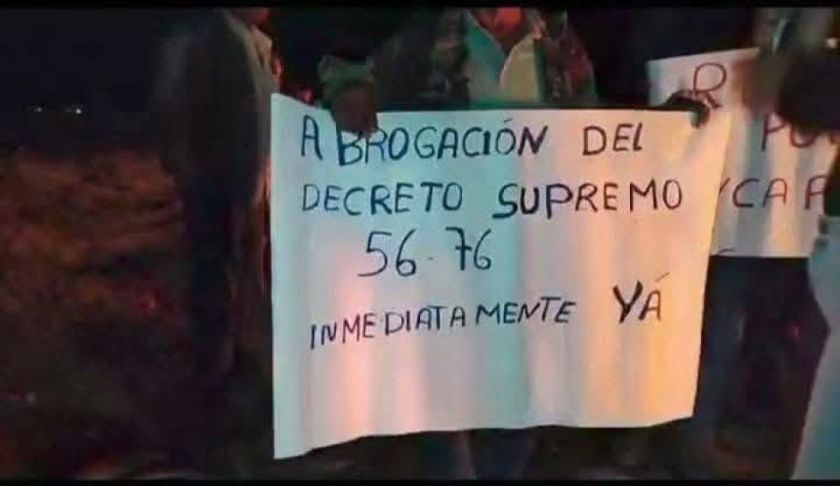 ABROGACIÓN DEL
DECRETO SUPREMO
56-76
INMEDIATAMENTE YÁ